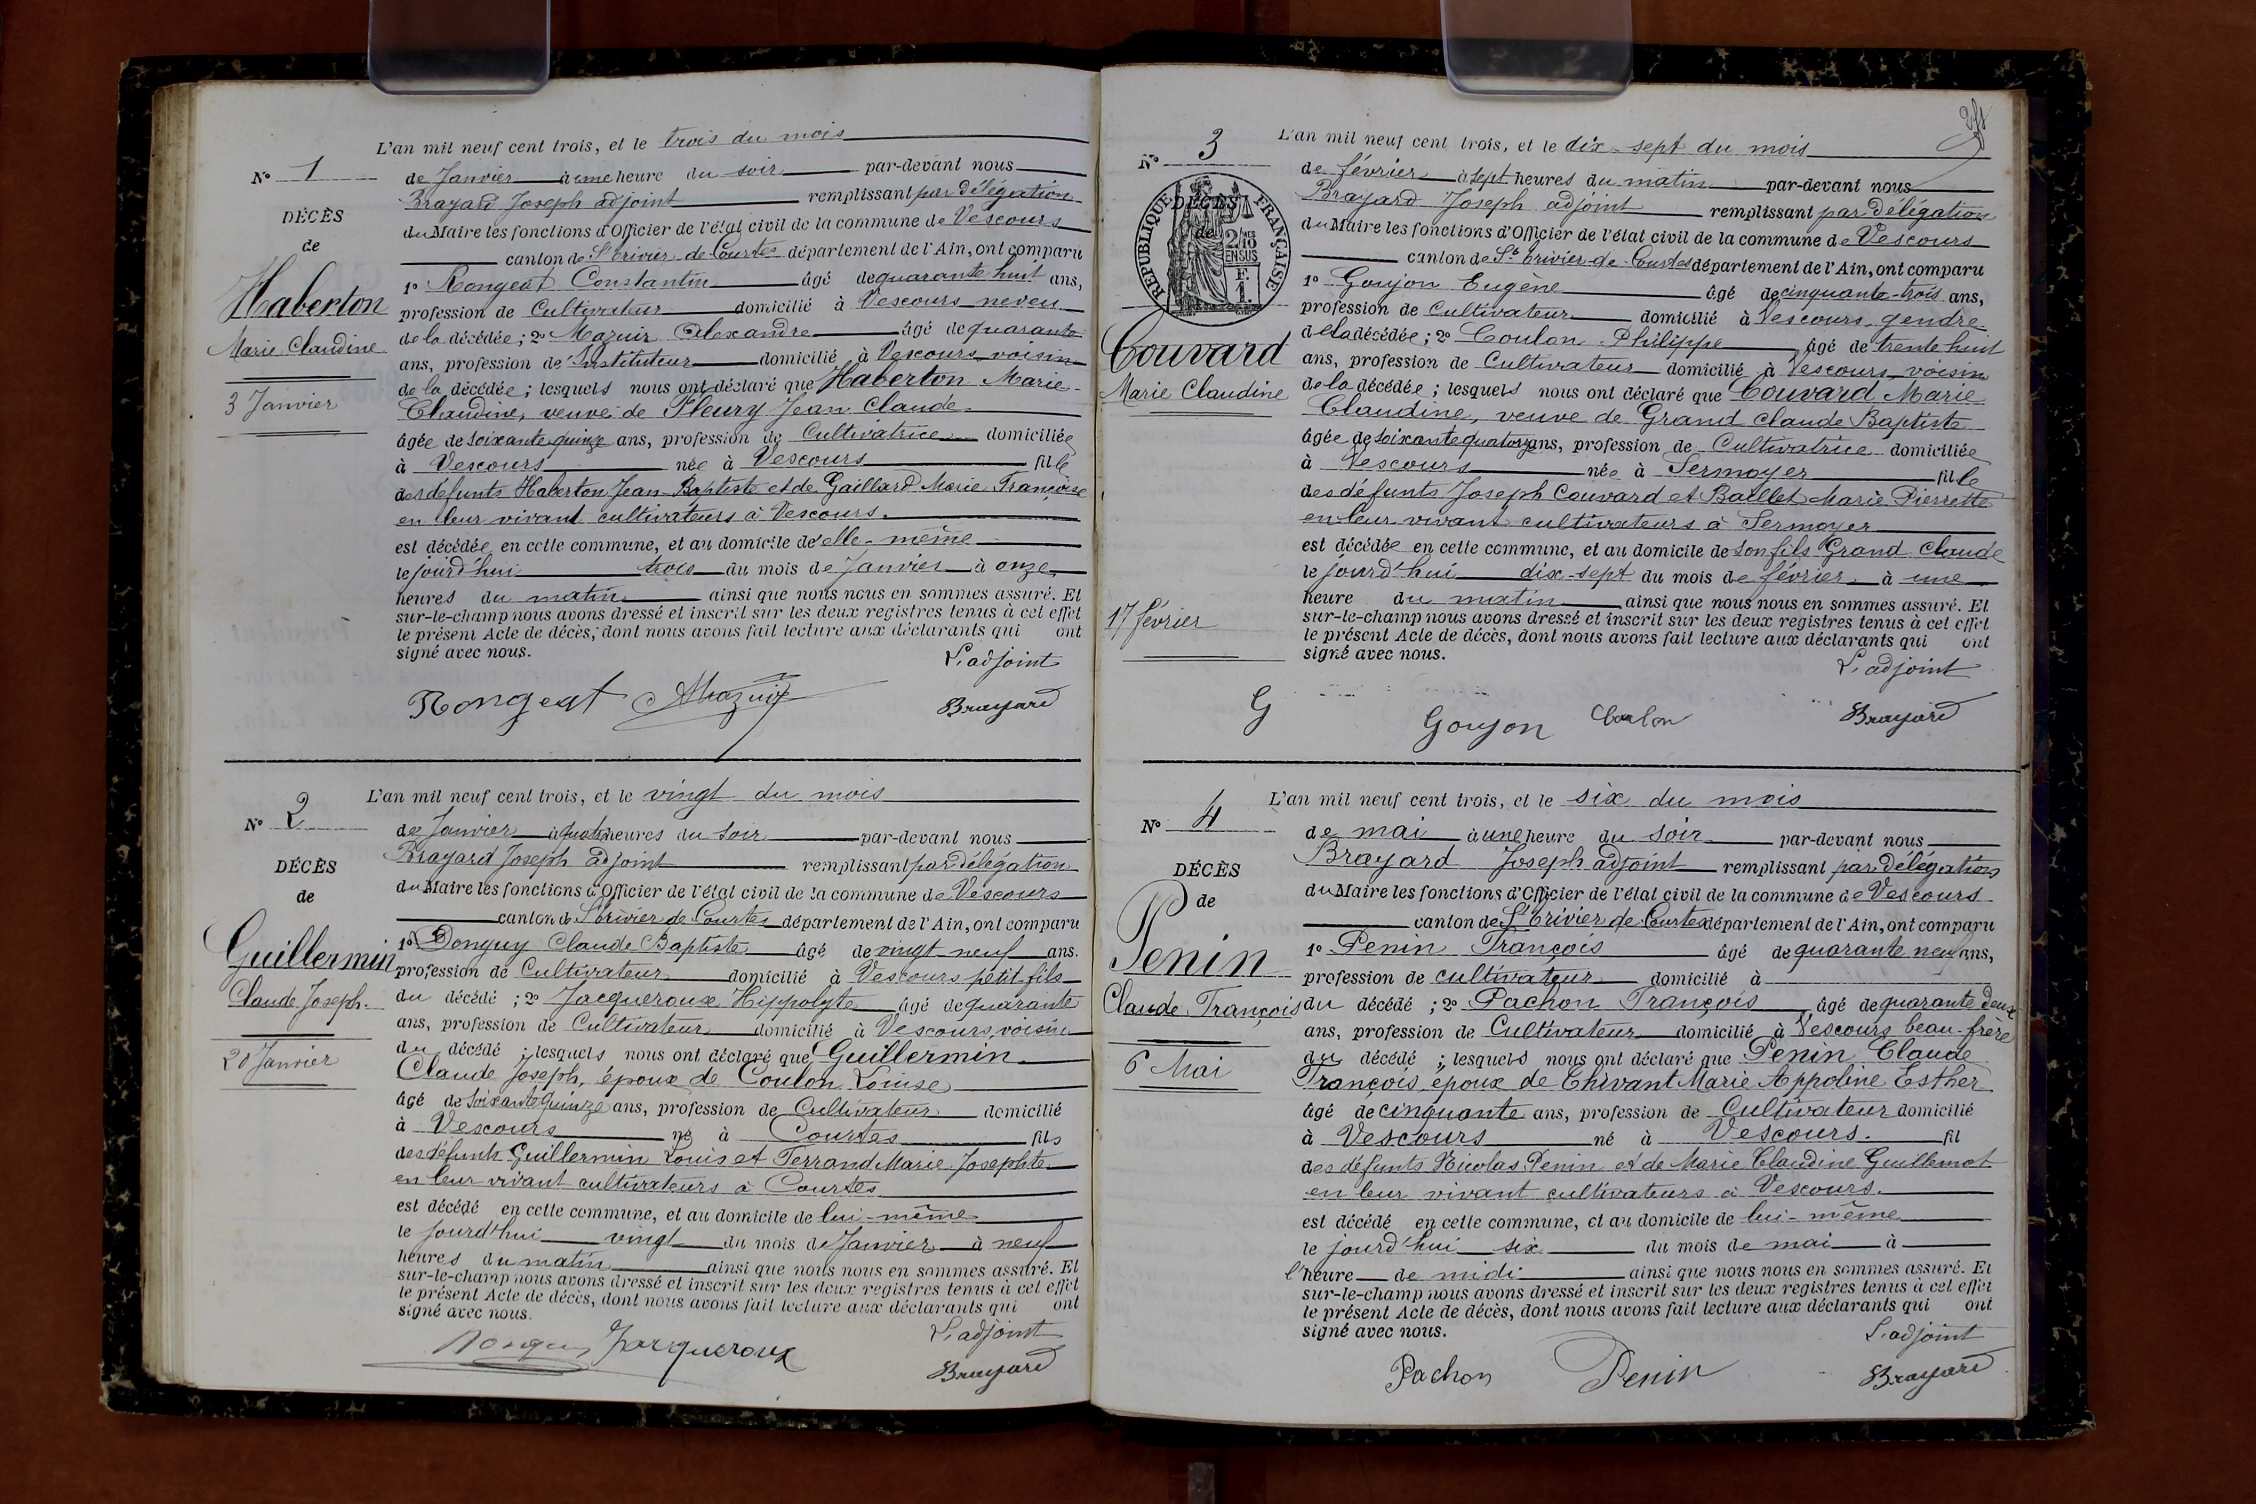 N° 1
DÉCÈS
de
Haberton
Marie Claudine
3 Janvier
L'an mil neuf cent trois, et le trois du mois
de Janvier à une heure du soir par-devant nous
Brayard Joseph adjoint remplissant par délégation
du Maire les fonctions d'Officier de l'état civil de la commune de Vescours
canton de St Trivier de Courtes département de l'Ain, ont comparu
1° Rongeat Constantin âgé de quarante huit ans,
profession de Cultivateur domicilié à Vescours neveu
de la décédée ; 2° Mazuir Alexandre âgé de quarante
ans, profession de Instituteur domicilié à Vescours voisin
de la décédée ; lesquels nous ont déclaré que Haberton Marie
Claudine, veuve de Fleury Jean Claude
âgée de soixante quinze ans, profession de Cultivatrice domiciliée
à Vescours née à Vescours fille
des défunts Haberton Jean Baptiste et de Gaillard Marie Françoise
en leur vivant cultivateurs à Vescours.
est décédée en cette commune, et au domicile de elle-même
le jourd'hui trois du mois de Janvier à onze
heures du matin ainsi que nous nous en sommes assuré. Et
sur-le-champ nous avons dressé et inscrit sur les deux registres tenus à cet effet
le présent Acte de décès, dont nous avons fait lecture aux déclarants qui ont
signé avec nous.
L'adjoint
Rongeat AMazuir Brayard
N° 2
DÉCÈS
de
Guillermin
Claude Joseph
20 Janvier
L'an mil neuf cent trois, et le vingt du mois
de Janvier à quatre heures du soir par-devant nous
Brayard Joseph adjoint remplissant par délégation
du Maire les fonctions d'Officier de l'état civil de la commune de Vescours
canton de St Trivier de Courtes département de l'Ain, ont comparu
1° Donguy Claude Baptiste âgé de vingt neuf ans.
profession de Cultivateur domicilié à Vescours petit-fils
du décédé ; 2° Jacqueroux Hippolyte âgé de quarante
ans, profession de Cultivateur domicilié à Vescours, voisin
du décédé ; lesquels nous ont déclaré que Guillermin
Claude Joseph, époux de Coulon Louise
âgé de soixante quinze ans, profession de Cultivateur domicilié
à Vescours né à Courtes fils
des défunts Guillermin Louis et Ferrand Marie Josephte
en leur vivant cultivateurs à Courtes
est décédé en cette commune, et au domicile de lui-même
le jourd'hui vingt du mois de Janvier à neuf
heures du matin ainsi que nous nous en sommes assuré. Et
sur-le-champ nous avons dressé et inscrit sur les deux registres tenus à cet effet
le présent Acte de décès, dont nous avons fait lecture aux déclarants qui ont
signé avec nous.
L'adjoint
Donguy Jacqueroux Brayard
N° 3
DÉCÈS
de
RÉPUBLIQUE FRANÇAISE
2/10 EN SUS
F. 1.
Couvard
Marie Claudine
17 février
L'an mil neuf cent trois, et le dix-sept du mois
de février à sept heures du matin par-devant nous
Brayard Joseph adjoint remplissant par délégation
du Maire les fonctions d'Officier de l'état civil de la commune de Vescours
canton de St Trivier de Courtes département de l'Ain, ont comparu
1° Goujon Eugène âgé de cinquante-trois ans,
profession de Cultivateur domicilié à Vescours, gendre
de la décédée ; 2° Coulon Philippe âgé de trente huit
ans, profession de Cultivateur domicilié à Vescours, voisin
de la décédée ; lesquels nous ont déclaré que Couvard Marie
Claudine, veuve de Grand Claude Baptiste
âgée de soixante quatorze ans, profession de Cultivatrice domiciliée
à Vescours née à Sermoyer fille
des défunts Joseph Couvard et Baillet Marie Pierrette
en leur vivant cultivateurs à Sermoyer
est décédée en cette commune, et au domicile de son fils Grand Claude
le jourd'hui dix-sept du mois de février à une
heure du matin ainsi que nous nous en sommes assuré. Et
sur-le-champ nous avons dressé et inscrit sur les deux registres tenus à cet effet
le présent Acte de décès, dont nous avons fait lecture aux déclarants qui ont
signé avec nous.
L'adjoint
G Goujon Coulon Brayard
N° 4
DÉCÈS
de
Penin
Claude François
6 Mai
L'an mil neuf cent trois, et le six du mois
de mai à une heure du soir par-devant nous
Brayard Joseph adjoint remplissant par délégation
du Maire les fonctions d'Officier de l'état civil de la commune de Vescours
canton de St Trivier de Courtes département de l'Ain, ont comparu
1° Penin François âgé de quarante neuf ans,
profession de cultivateur domicilié à
du décédé ; 2° Pachon François âgé de quarante deux
ans, profession de Cultivateur domicilié à Vescours beau-frère
du décédé ; lesquels nous ont déclaré que Penin Claude
François, époux de Chevant Marie Appoline Esther
âgé de cinquante ans, profession de Cultivateur domicilié
à Vescours né à Vescours. fil
des défunts Nicolas Penin et de Marie Claudine Guillemot
en leur vivant cultivateurs à Vescours.
est décédé en cette commune, et au domicile de lui-même
le jourd'hui six du mois de mai à
l'heure de midi ainsi que nous nous en sommes assuré. Et
sur-le-champ nous avons dressé et inscrit sur les deux registres tenus à cet effet
le présent Acte de décès, dont nous avons fait lecture aux déclarants qui ont
signé avec nous.
L'adjoint
Pachon Penin Brayard